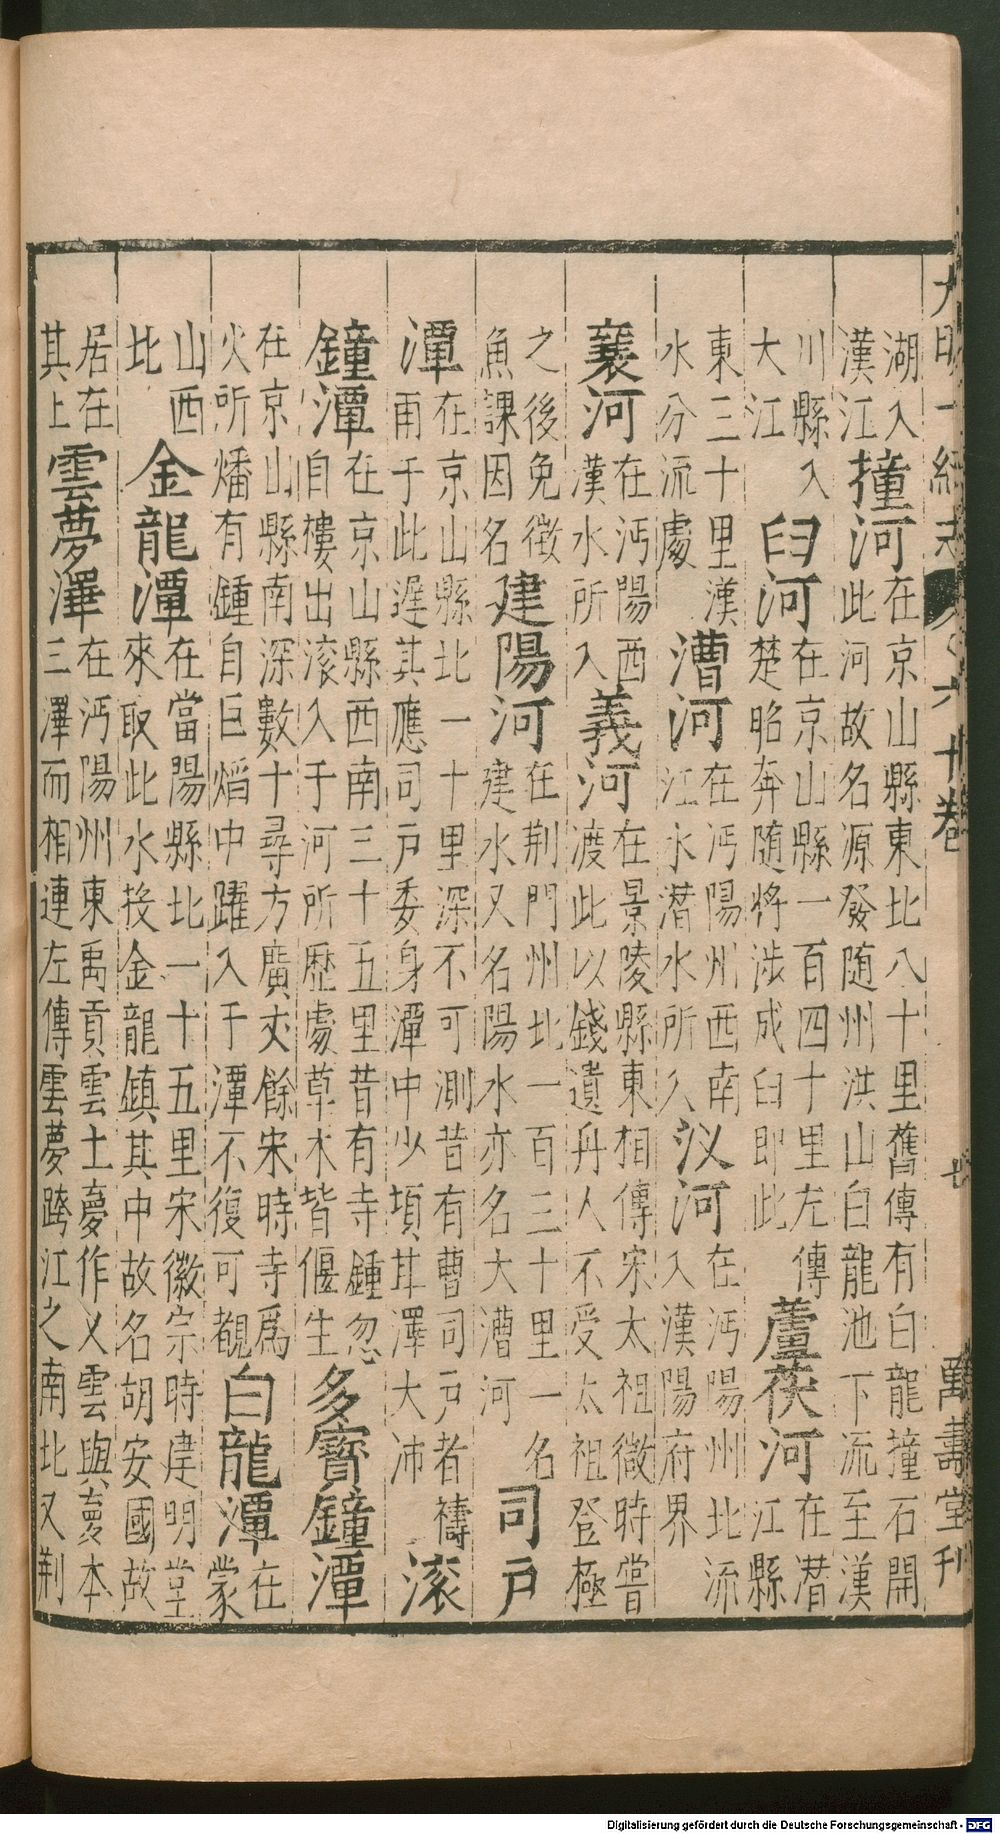 大明一統志 六十卷 七 萬壽堂刊
湖入漢江撞河在京山縣東北八十里舊傳有白龍撞石開此河故名源發随州洪山白龍池下流至漢
川縣入大江臼河在京山縣一百四十里左傳楚昭奔随將涉成臼即此蘆茯河在潛江縣
東三十里漢水分流處漕河在沔陽州西南江水潛水所入汊河在沔陽州北流入漢陽府界
襄河在沔陽西漢水所入義河在景陵縣東相傳宋太祖微時嘗渡此以錢遺舟人不受太祖登極
之後免徵魚課因名建陽河在荆門州北一百三十里一名建水又名陽水亦名大漕河司戸
潭在京山縣北一十里深不可測昔有曹司戸者禱雨于此遲其應司戸委身潭中少頃其澤大沛滚
鐘潭在京山縣西南三十五里昔有寺鍾忽自樓出滚入于河所歷處草木皆偃生多寳鐘潭
在京山縣南深數十尋方廣丈餘宋時寺爲火所燔有鍾自巨熖中躍入于潭不復可覩白龍潭在蒙
山西北金龍潭在當陽縣北一十五里宋徽宗時建明堂來取此水投金龍鎮其中故名胡安國故
居在其上雲夢澤在沔陽州東禹貢雲土夢作乂雲與夢本三澤而相連左傳雲夢跨江之南北又荆
Digitalisierung gefördert durch die Deutsche Forschungsgemeinschaft - DFG